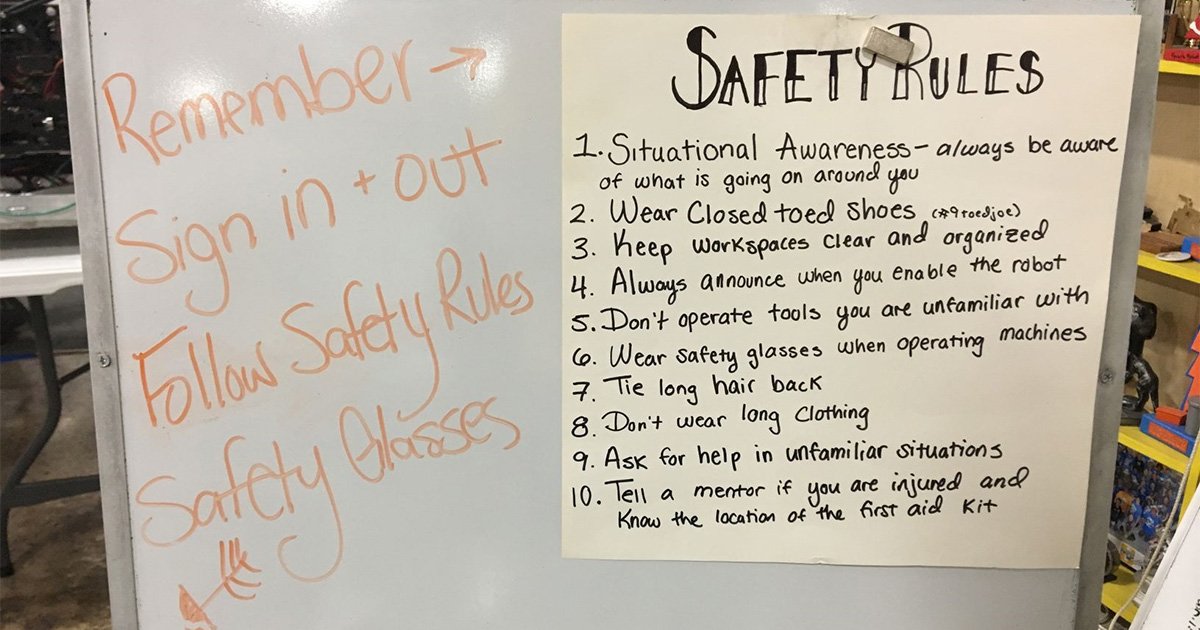 Remember →
Sign in + out
Follow Safety Rules
Safety Glasses
SAFETY RULES
1. Situational Awareness – always be aware
of what is going on around you
2. Wear Closed toed shoes (#9toedjoe)
3. Keep workspaces clear and organized
4. Always announce when you enable the robot
5. Don't operate tools you are unfamiliar with
6. Wear safety glasses when operating machines
7. Tie long hair back
8. Don't wear long clothing
9. Ask for help in unfamiliar situations
10. Tell a mentor if you are injured and
Know the location of the first aid kit